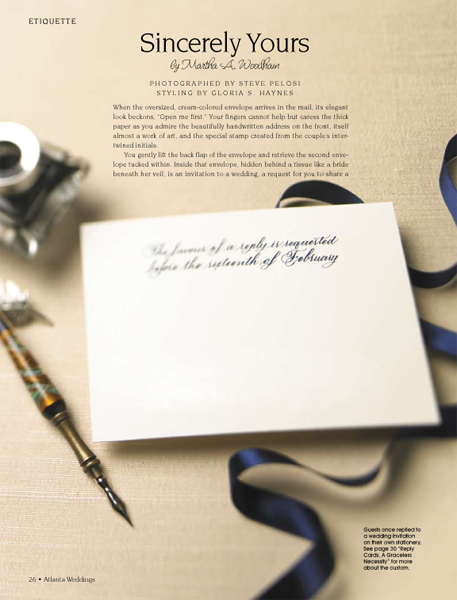 ETIQUETTE
Sincerely Yours
by Martha A. Woodham
PHOTOGRAPHED BY STEVE PELOSI
STYLING BY GLORIA S. HAYNES
When the oversized, cream-colored envelope arrives in the mail, its elegant
look beckons, "Open me first." Your fingers cannot help but caress the thick
paper as you admire the beautifully handwritten address on the front, itself
almost a work of art, and the special stamp created from the couple's inter-
twined initials.
You gently lift the back flap of the envelope and retrieve the second enve-
lope tucked within. Inside that envelope, hidden behind a tissue like a bride
beneath her veil, is an invitation to a wedding, a request for you to share a
The favour of a reply is requested
before the sixteenth of February
Guests once replied to
a wedding invitation
on their own stationery.
See page 30 "Reply
Cards, A Graceless
Necessity" for more
about the custom.
26 • Atlanta Weddings